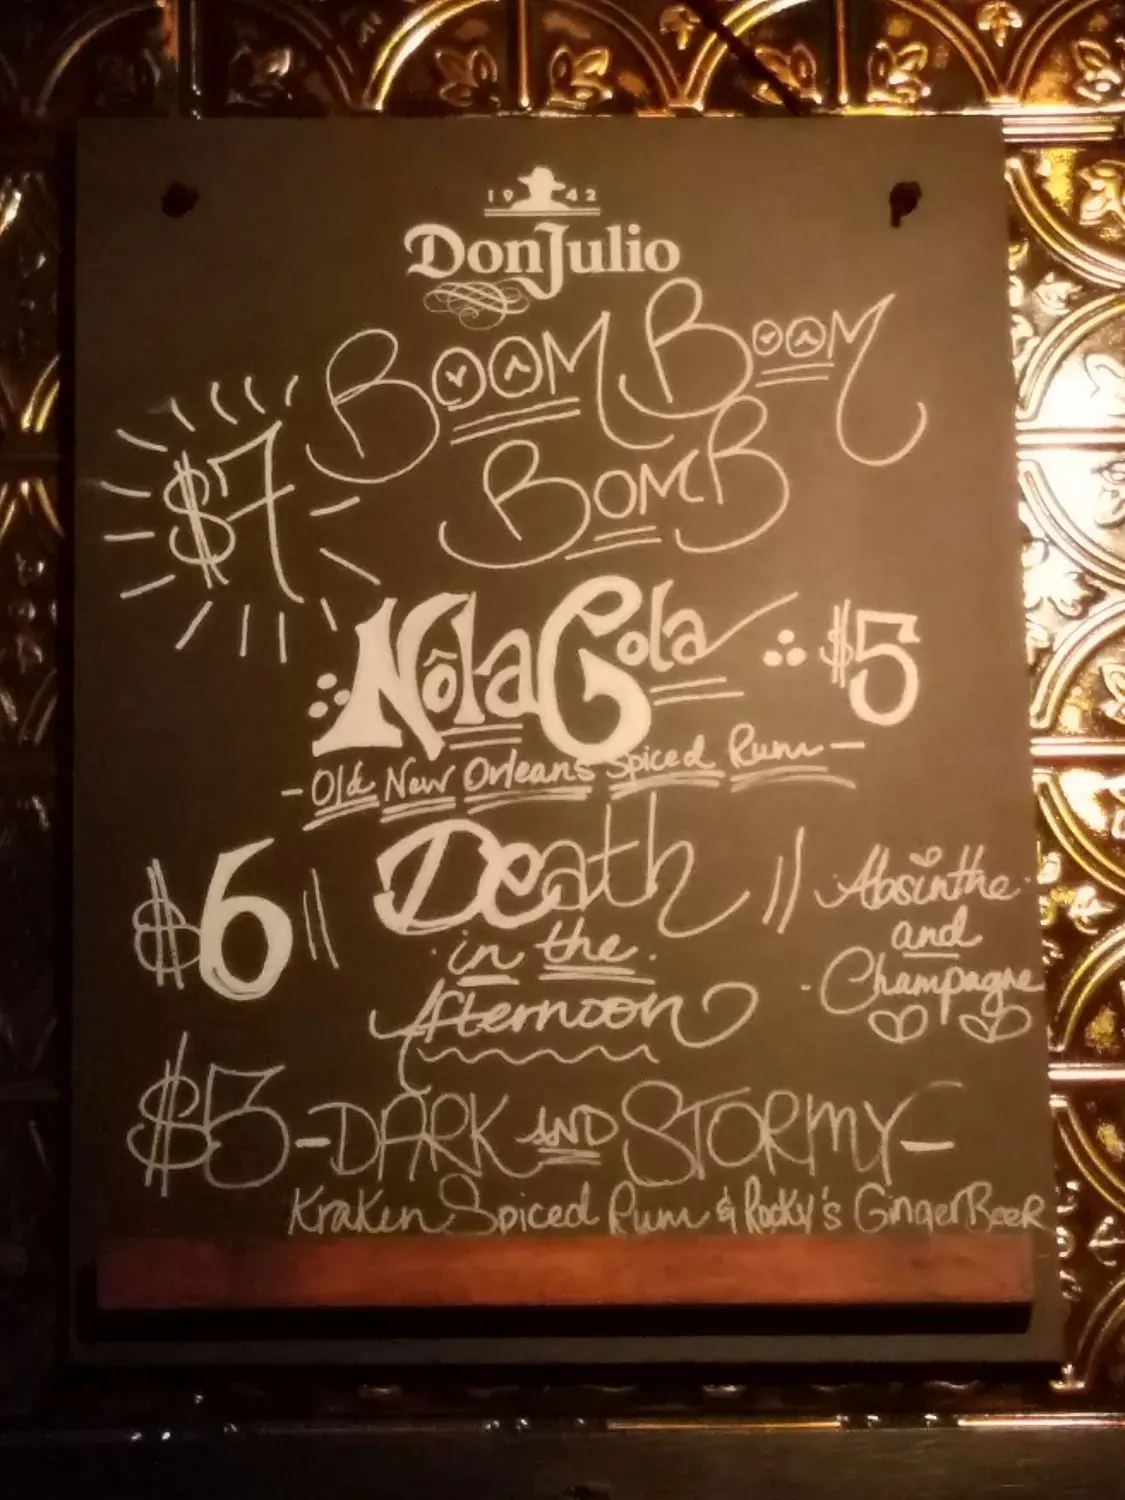 1942
Don Julio
Boom Boom
$7 Bomb
Nôla Cola $5
- Old New Orleans Spiced Rum -
$6 || Death || Absinthe
in the and
Afternoon Champagne
$5 - DARK AND STORMY -
Kraken Spiced Rum & Rocky's Ginger Beer